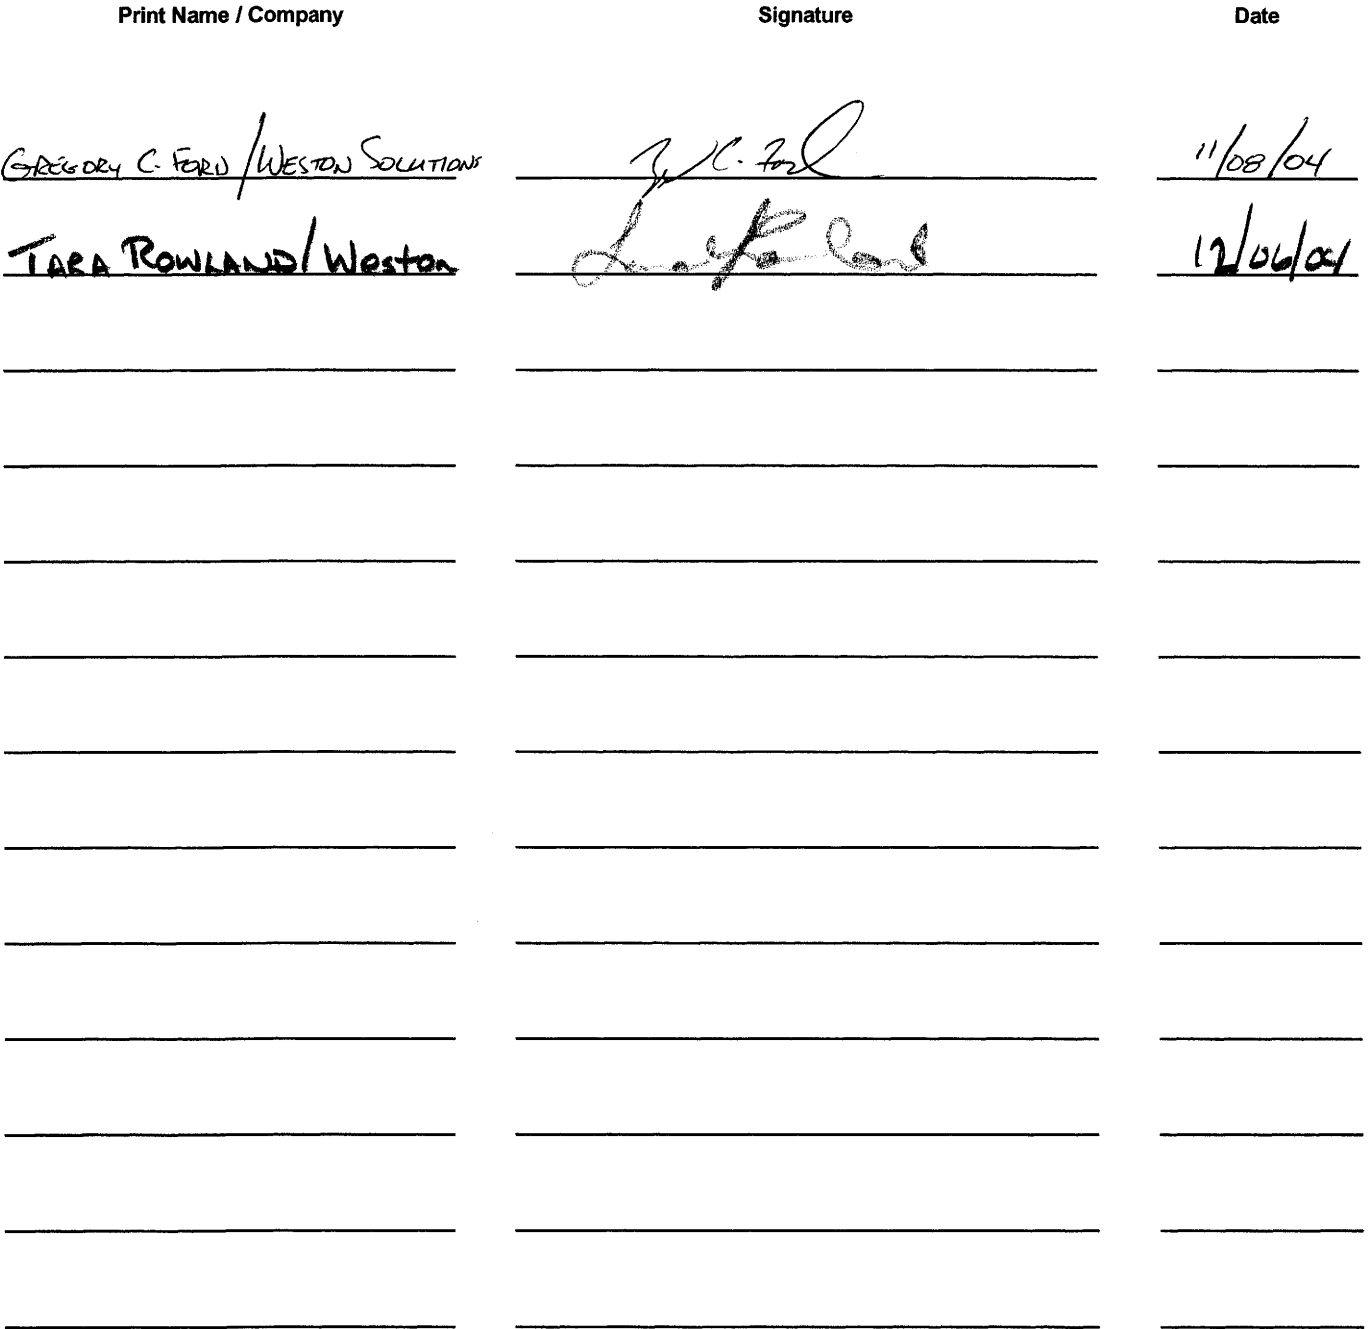 Print Name / Company Signature Date
GREGORY C. FORD / WESTON SOLUTIONS C. Ford 11/08/04
TARA ROWLAND / Weston Tara Rowland 12/06/04